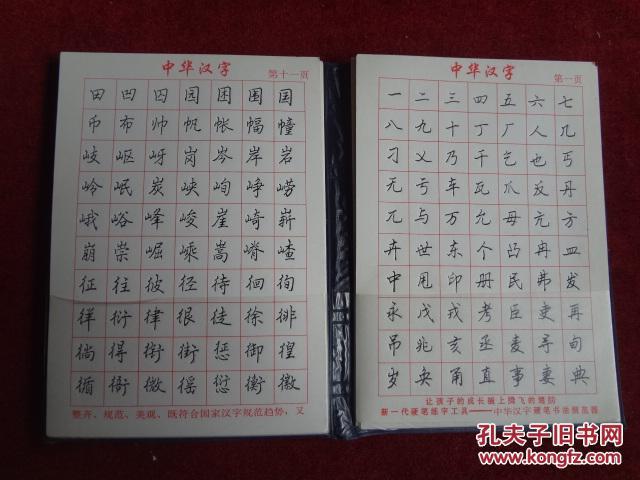 中华汉字
第十一页
田 凹 四 园 困 围 国
币 布 帅 帆 帐 幅 幢
岐 岖 岈 岗 岑 岸 岩
岭 岷 炭 峡 峋 峥 崂
峨 峪 峰 峻 崖 崎 崭
崩 崇 崛 嵊 嵩 嵴 嵖
征 往 彼 径 待 徊 徇
徉 衍 律 很 徒 徐 徘
徜 得 衔 街 惩 御 徨
循 衙 微 徭 愆 衡 徽
整齐、规范、美观、既符合国家汉字规范趋势,又
中华汉字
第一页
一 二 三 四 五 六 七
八 九 十 丁 厂 人 几
刁 乂 乃 千 乞 也 丐
无 亏 车 瓦 爪 及 丹
兀 与 万 允 毋 亢 方
卉 世 东 个 凸 冉 皿
中 甩 印 册 民 弗 发
永 戊 戎 考 臣 吏 再
吊 兆 亥 丞 麦 寻 旬
岁 央 甬 直 事 妻 典
让孩子的成长插上腾飞的翅膀
新一代硬笔练字工具——中华汉字硬笔书法摸范器
孔夫子旧书网